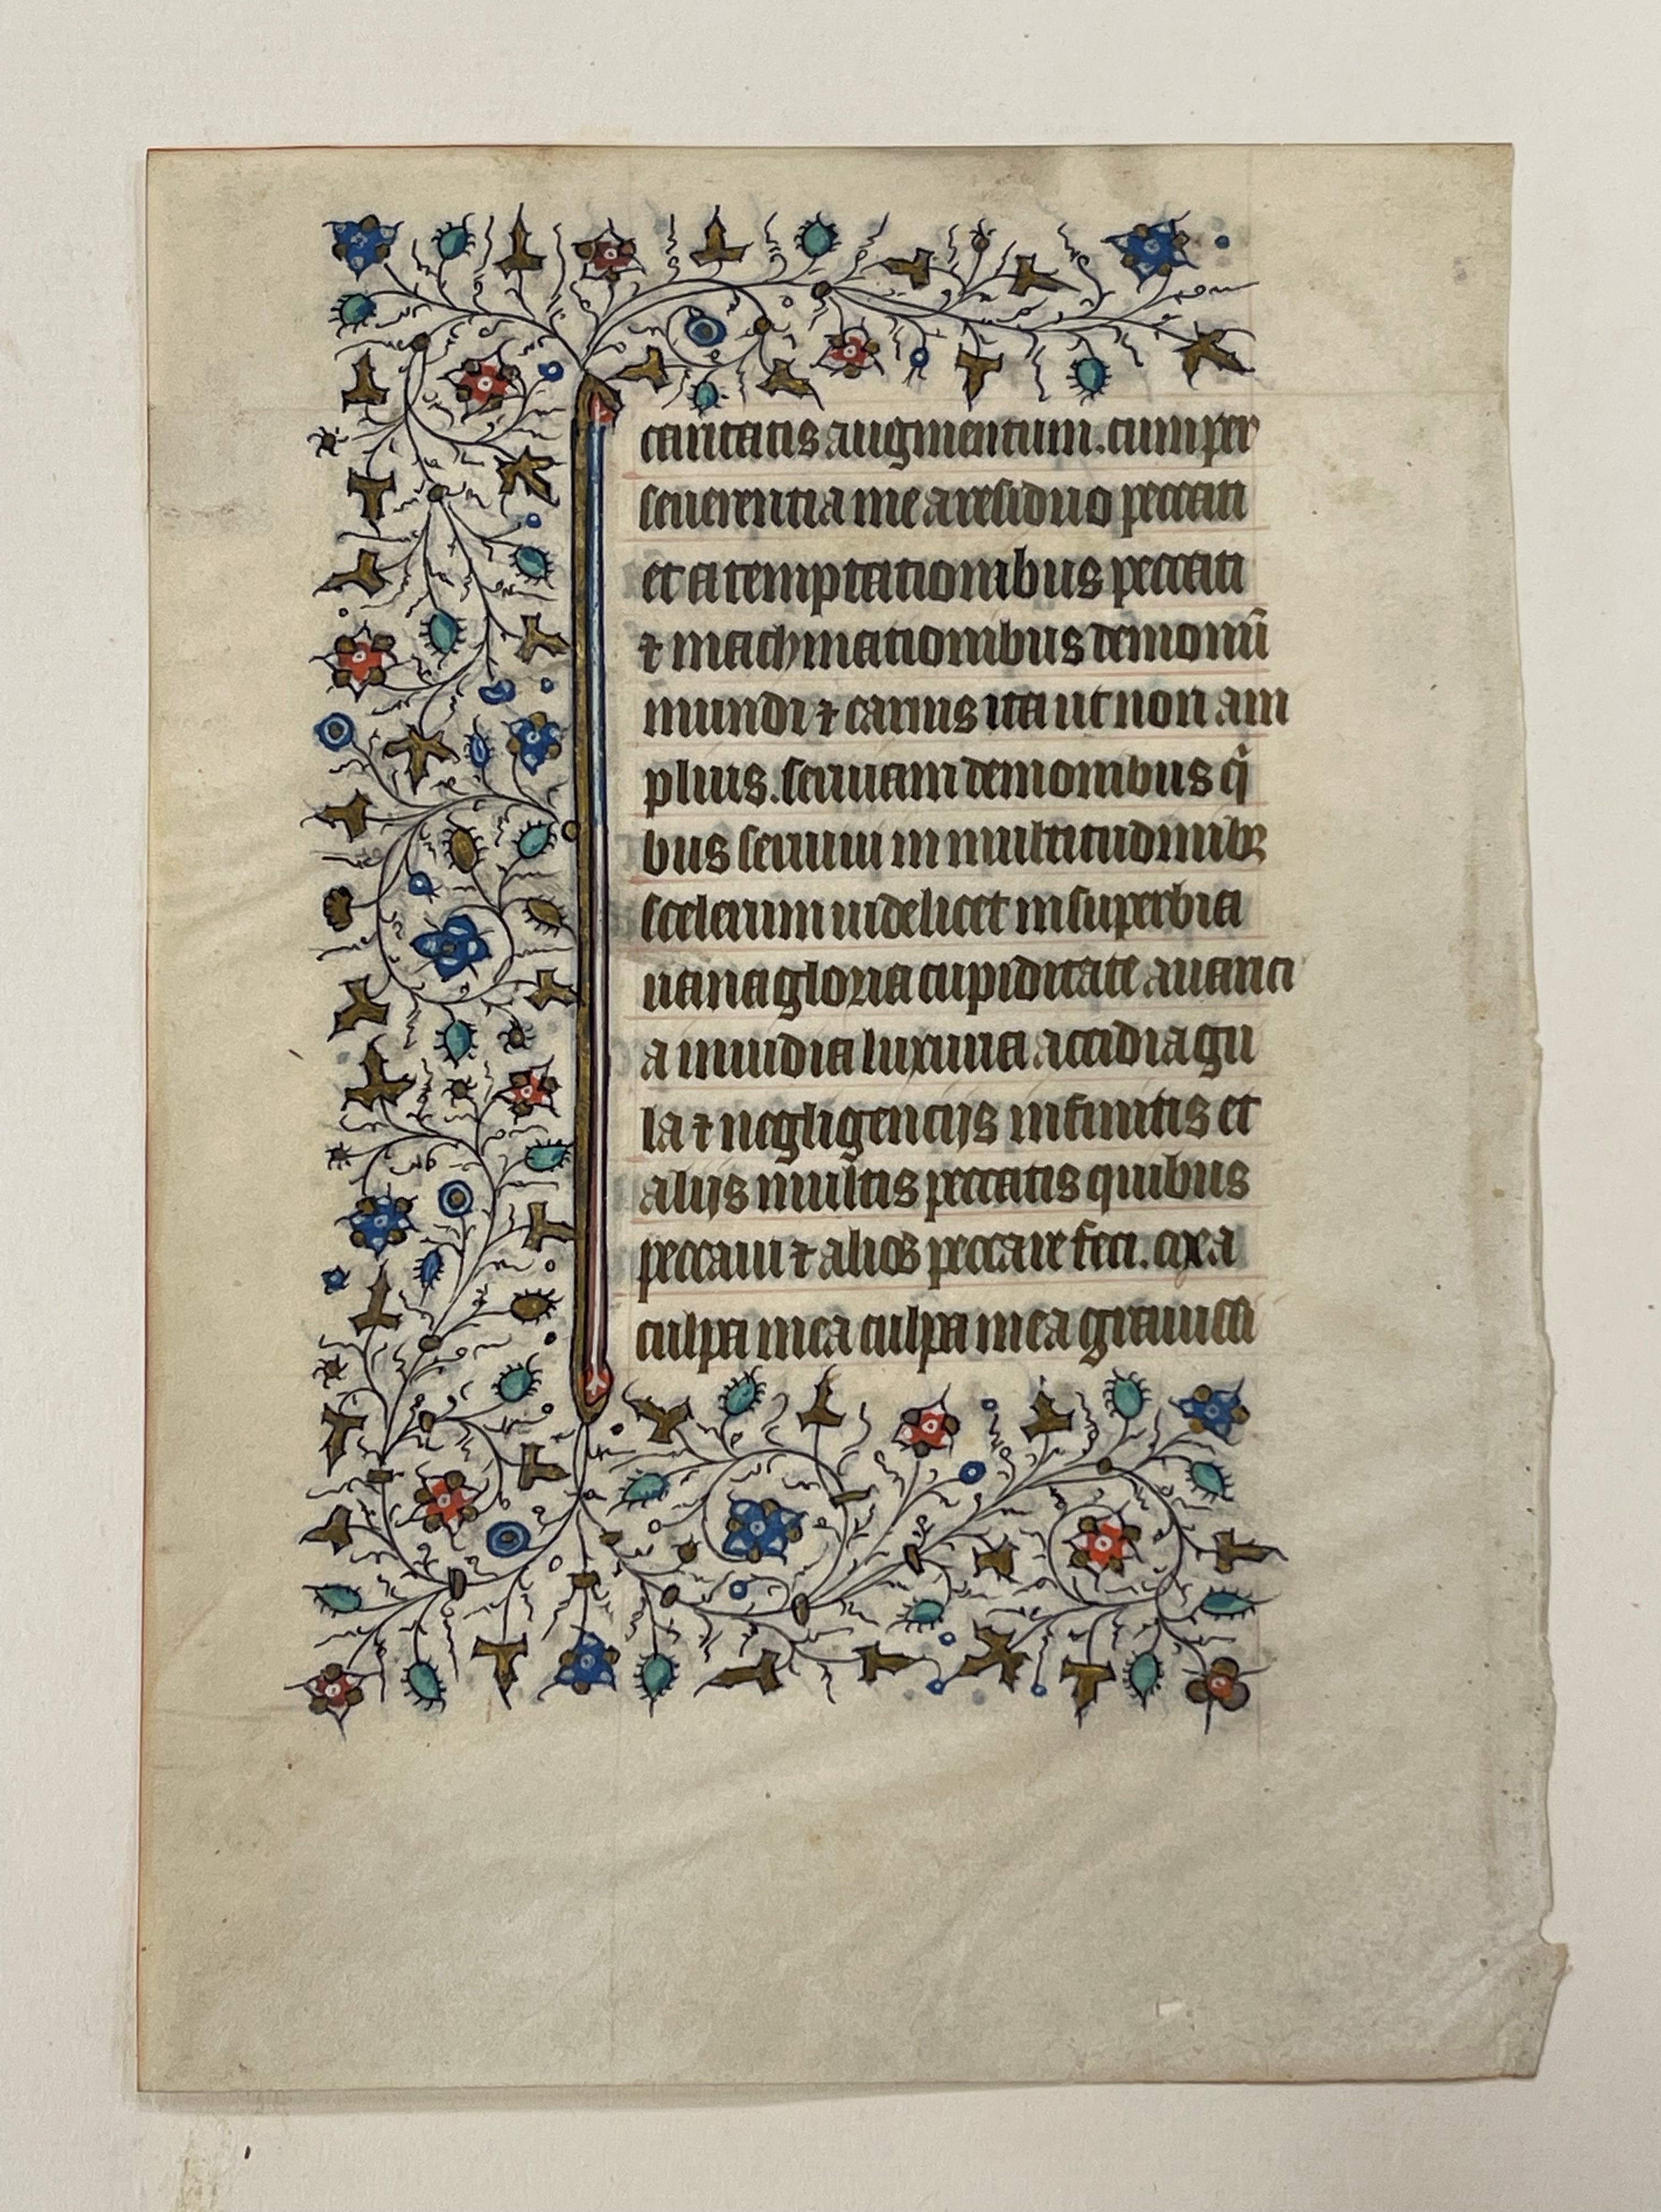 caritatis augmentum. cum per
seuerentia me a residuo peccati
et a temptationibus peccati
⁊ machinationibus demonũ
mundi ⁊ carnis ita ut non am
plius. seruiam demonibus qͥ
bus seruiui in multitudinibꝫ
scelerum uidelicet in superbia
uana gloria cupiditate auarici
a inuidia luxuria accidia gu
la ⁊ negligencijs infinitis et
alijs multis peccatis quibus
peccaui ⁊ alios peccare feci. ex ea
culpa mea culpa mea grauissi